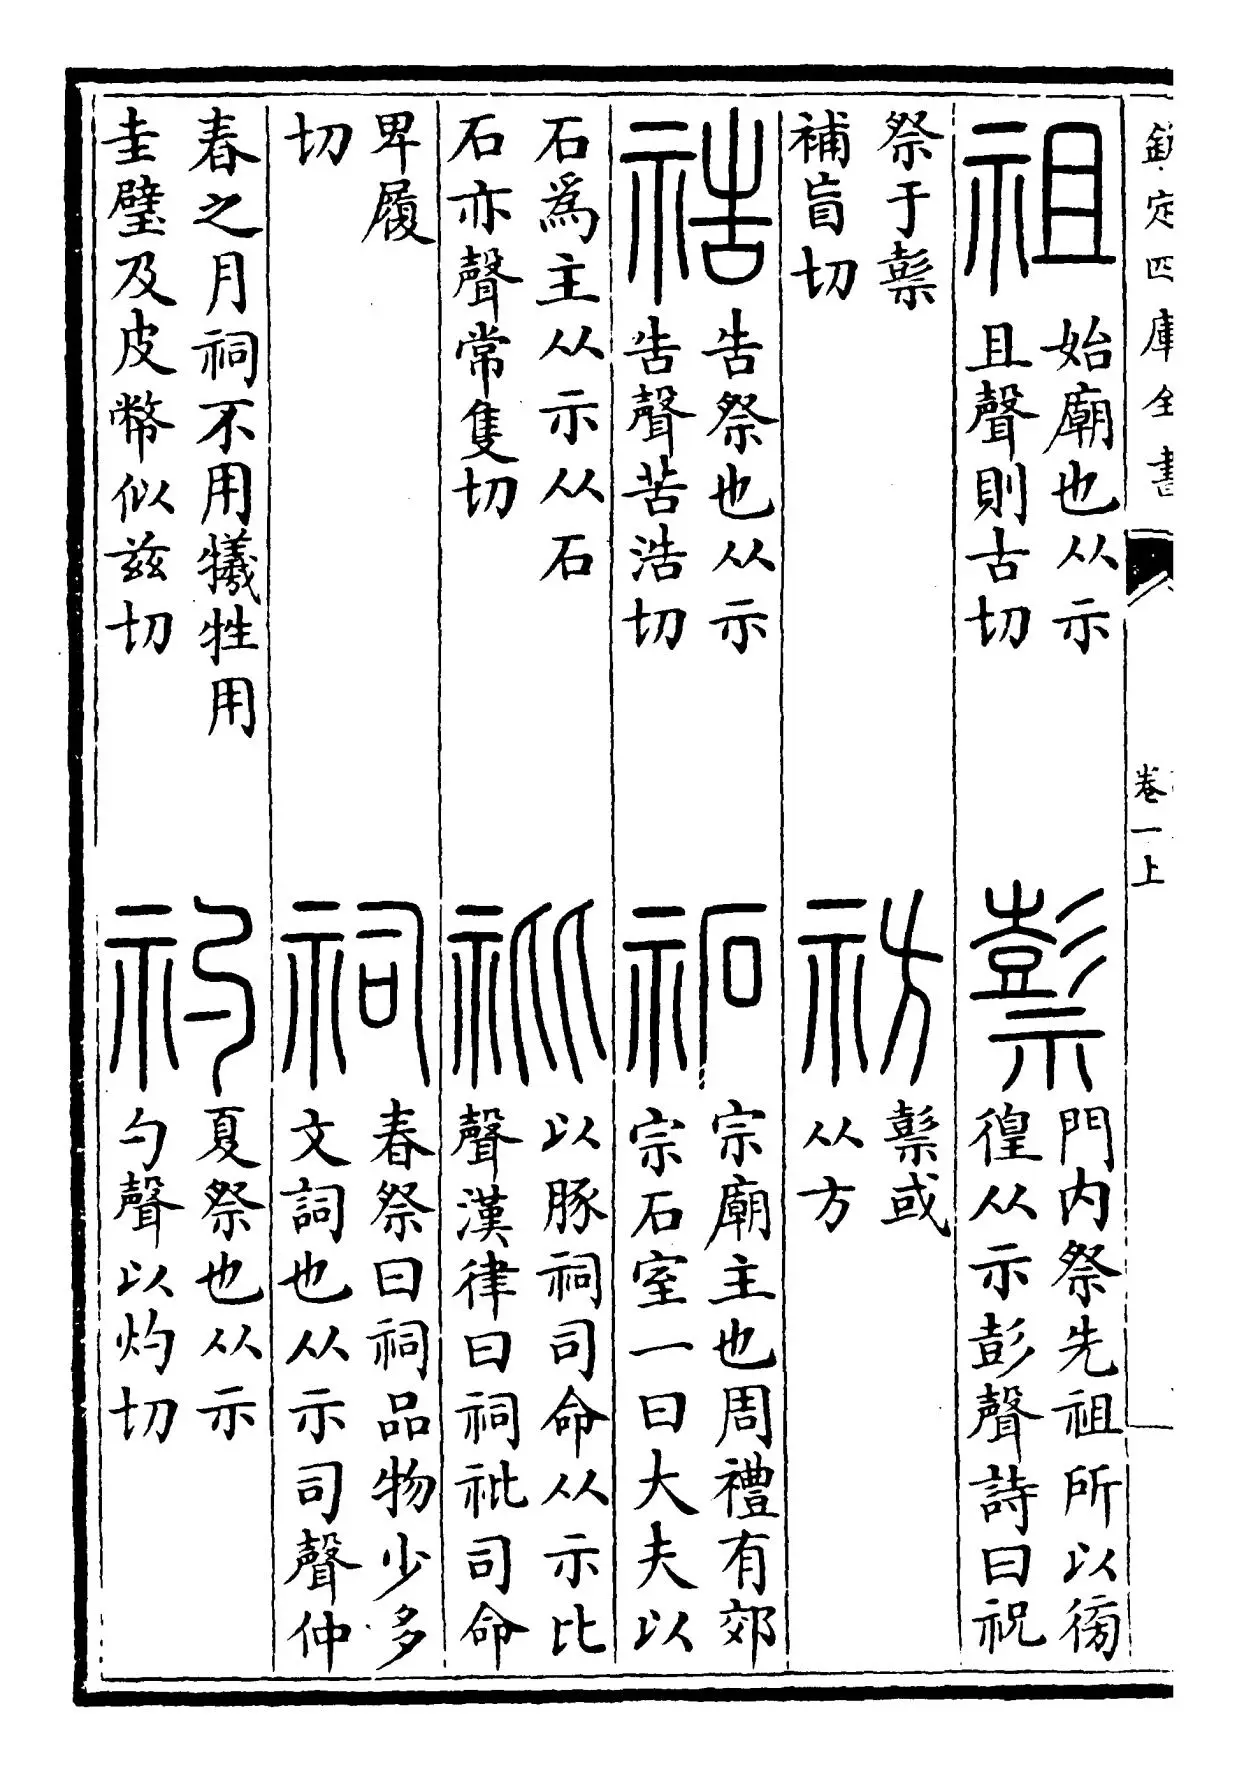 欽定四庫全書
卷一上
祖
始廟也从示
且聲則古切
𥛱
門内祭先祖所以徬
徨从示彭聲詩曰祝
祭于𥛱
補盲切
祊
𥛱或
从方
祰
告祭也从示
告聲苦浩切
祏
宗廟主也周禮有郊
宗石室一曰大夫以
石爲主从示从石
石亦聲常隻切
䃾
以豚祠司命从示比
聲漢律曰祠䃾司命
卑履
切
祠
春祭曰祠品物少多
文詞也从示司聲仲
春之月祠不用犧牲用
圭璧及皮幣似兹切
礿
夏祭也从示
勺聲以灼切